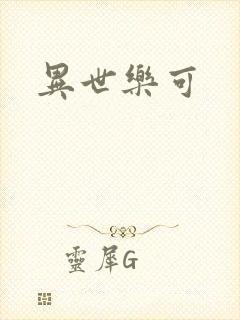 異世樂可
靈犀G